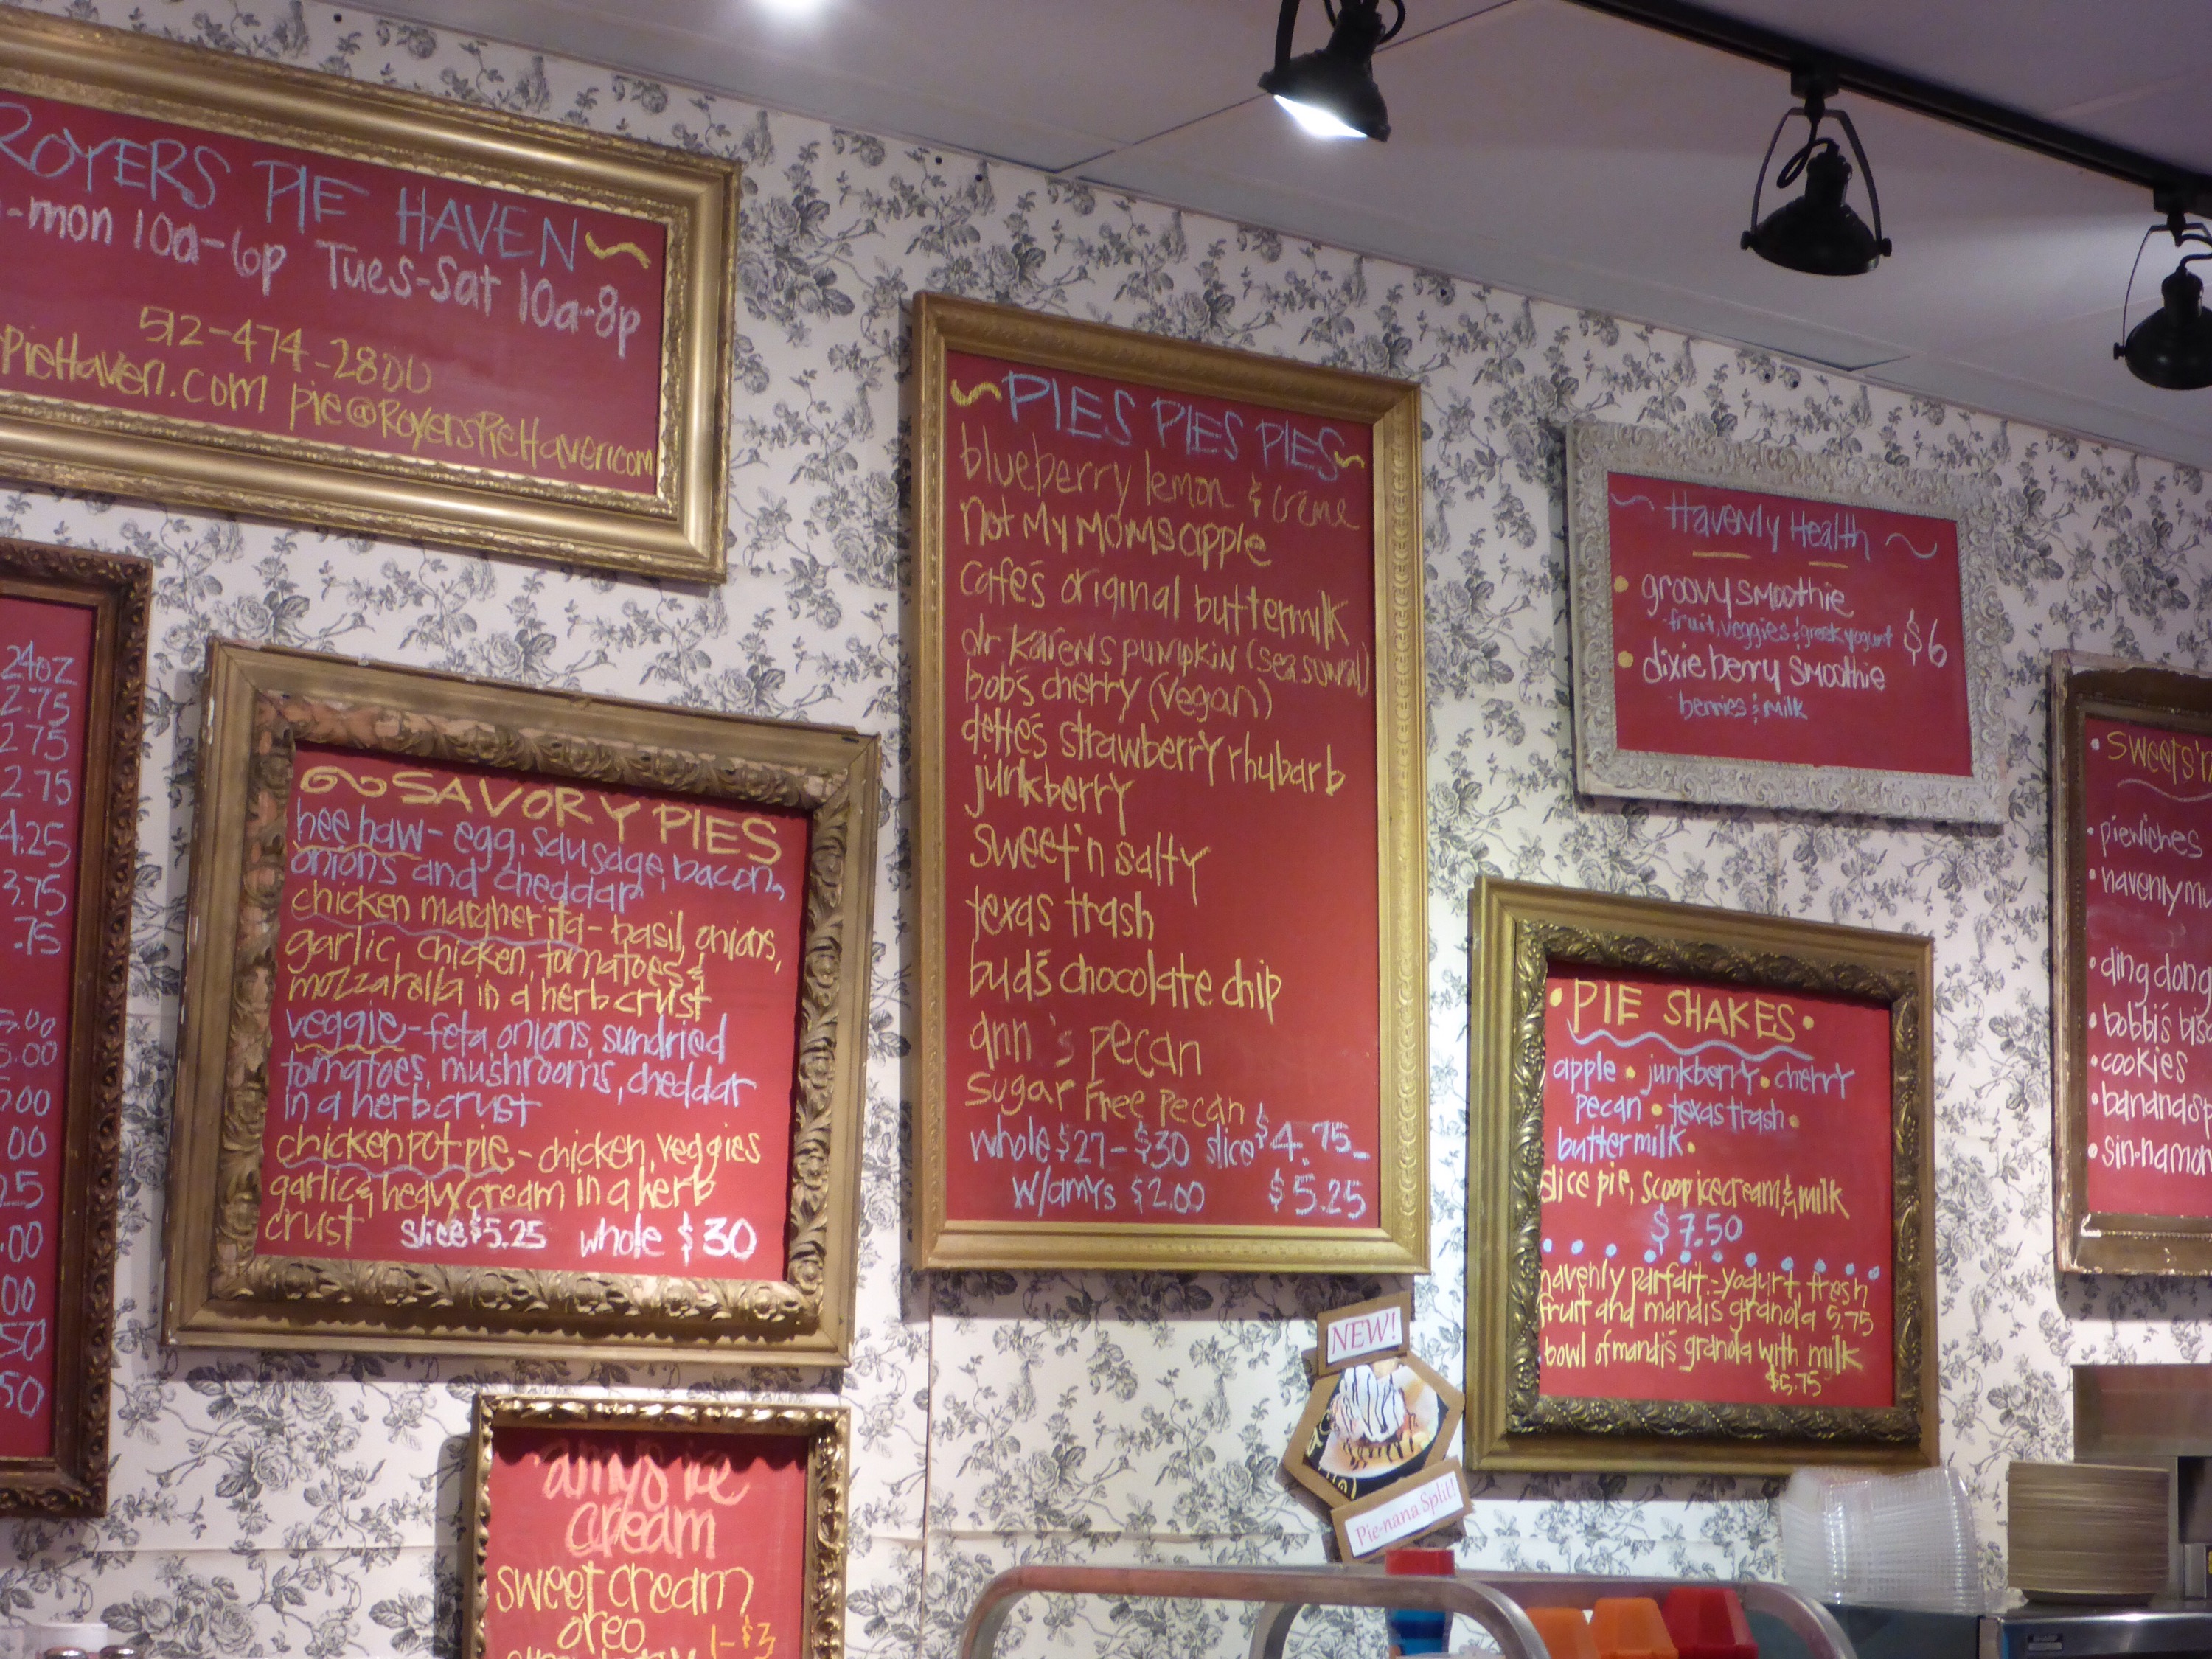 ROYERS PIE HAVEN
-mon 10a-6p Tues-Sat 10a-8p
512-474-2800
PieHaven.com pie@RoyersPieHaven.com
24oz
2.75
2.75
2.75
4.25
3.75
.75
5.00
5.00
00
00
25
.00
00
50
50
SAVORY PIES
hee haw - egg, sausage, bacon,
onions and cheddar
chicken margherita - basil, onions,
garlic, chicken, tomatoes &
mozzarella in a herb crust
veggie - feta, onions, sundried
tomatoes, mushrooms, cheddar
in a herb crust
chicken pot pie - chicken, veggies
garlic & heavy cream in a herb
crust slice $5.25 whole $30
amys ice
cream
sweet cream
oreo
1-$3
PIES PIES PIES
blueberry lemon & crème
not My Moms apple
cafe's original buttermilk
dr karen's pumpkin (seasonal)
bob's cherry (vegan)
dette's strawberry rhubarb
junkberry
sweet'n salty
texas trash
bud's chocolate chip
ann's pecan
sugar free pecan
whole $27-$30 slice $4.75-
w/amys $2.00 $5.25
NEW!
Pie-nana Split!
Havenly Health
groovy smoothie
-fruit, veggies & greek yogurt $6
dixie berry smoothie
-berries & milk
• PIE SHAKES •
apple • junkberry • cherry
pecan • texas trash •
buttermilk •
slice pie, scoop icecream & milk
$7.50
havenly parfait - yogurt, fresh
fruit and mandis granola 5.75
bowl of mandi's granola with milk
$5.75
sweets
• piewiches
• havenly mu
• ding dong
• bobbi's bisc
• cookies
• banana sp
• sin-namon